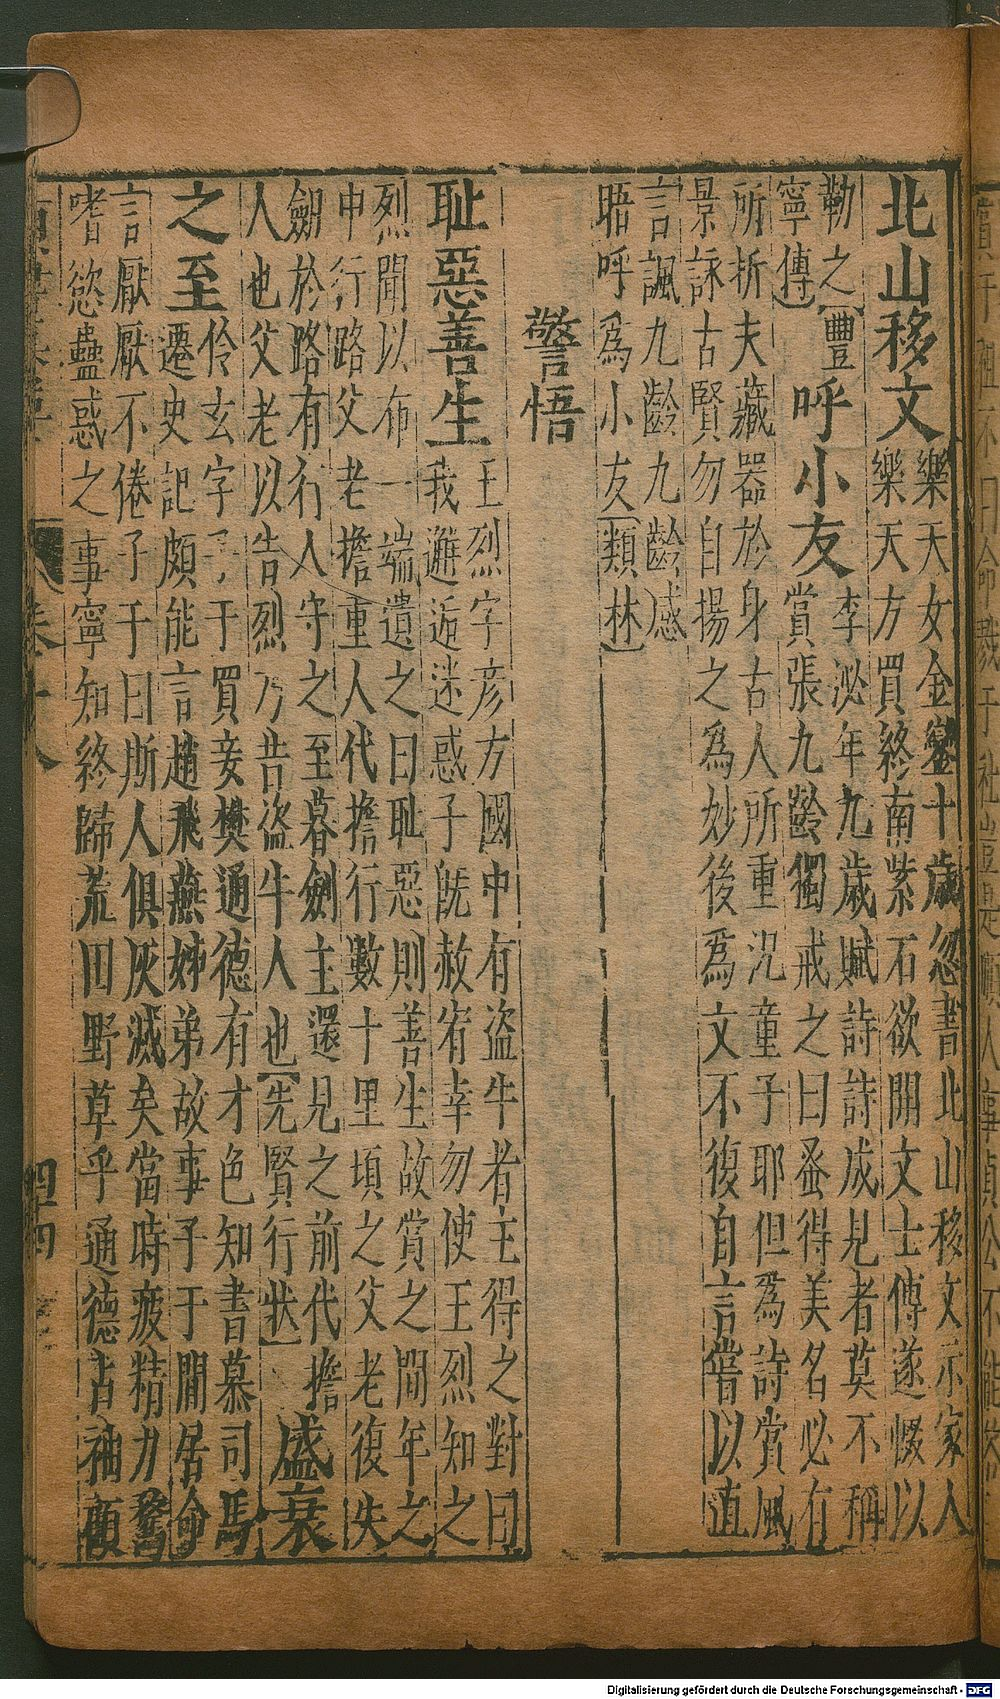 北山移文
樂天女金鑾十歲忽書北山移文示家人
樂天方買終南紫石欲開文士傳遂輟以
勒之【豐
寧傳】
呼小友
李泌年九歲賦詩詩成見者莫不稱
賞張九齡獨戒之曰蚤得美名必有
所折夫藏器於身古人所重況童子耶但為詩賞風
景詠古賢勿自揚之為妙後為文不復自言嘗以直
言諷九齡九齡感
晤呼為小友【類林】
警悟
耻惡善生
王烈字彥方國中有盜牛者主得之對曰
我邂逅迷惑子旣赦宥幸勿使王烈知之
烈聞以布一端遺之曰耻惡則善生故賞之間年之
申行路父老擔重人代擔行數十里頃之父老復失
劒於路有行人守之至暮劍主還見之前代擔
人也父老以告烈乃昔盜牛人也【先賢行狀】
盛衰
之至
伶玄字子于買妾樊通德有才色知書慕司馬
遷史記頗能言趙飛燕姊弟故事子于閒居命
言厭厭不倦子于曰斯人俱灰滅矣當時疲精力騖
嗜慾蠱惑之事寧知終歸荒田野草乎通德占袖顧
卷十八
Digitalisierung gefördert durch die Deutsche Forschungsgemeinschaft - DFG